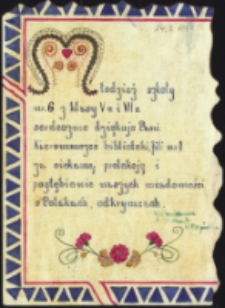 Młodzież szkoły
nr 6 z klasy Va i VIa
serdecznie dziękuje Pani
kierowniczce biblioteki, fili nr 1
za ciekawą prelekcję i
pogłębianie naszych wiadomości
o Polakach, odkrywcach.